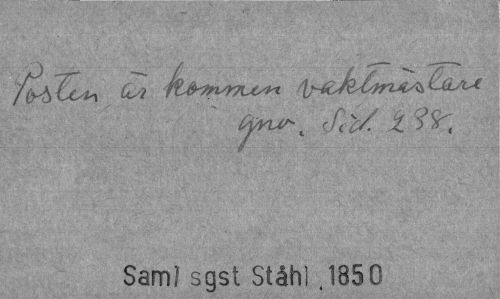 Posten är kommen vaktmästare
gno. Sid. 238.
Saml sgst Ståhl 1850